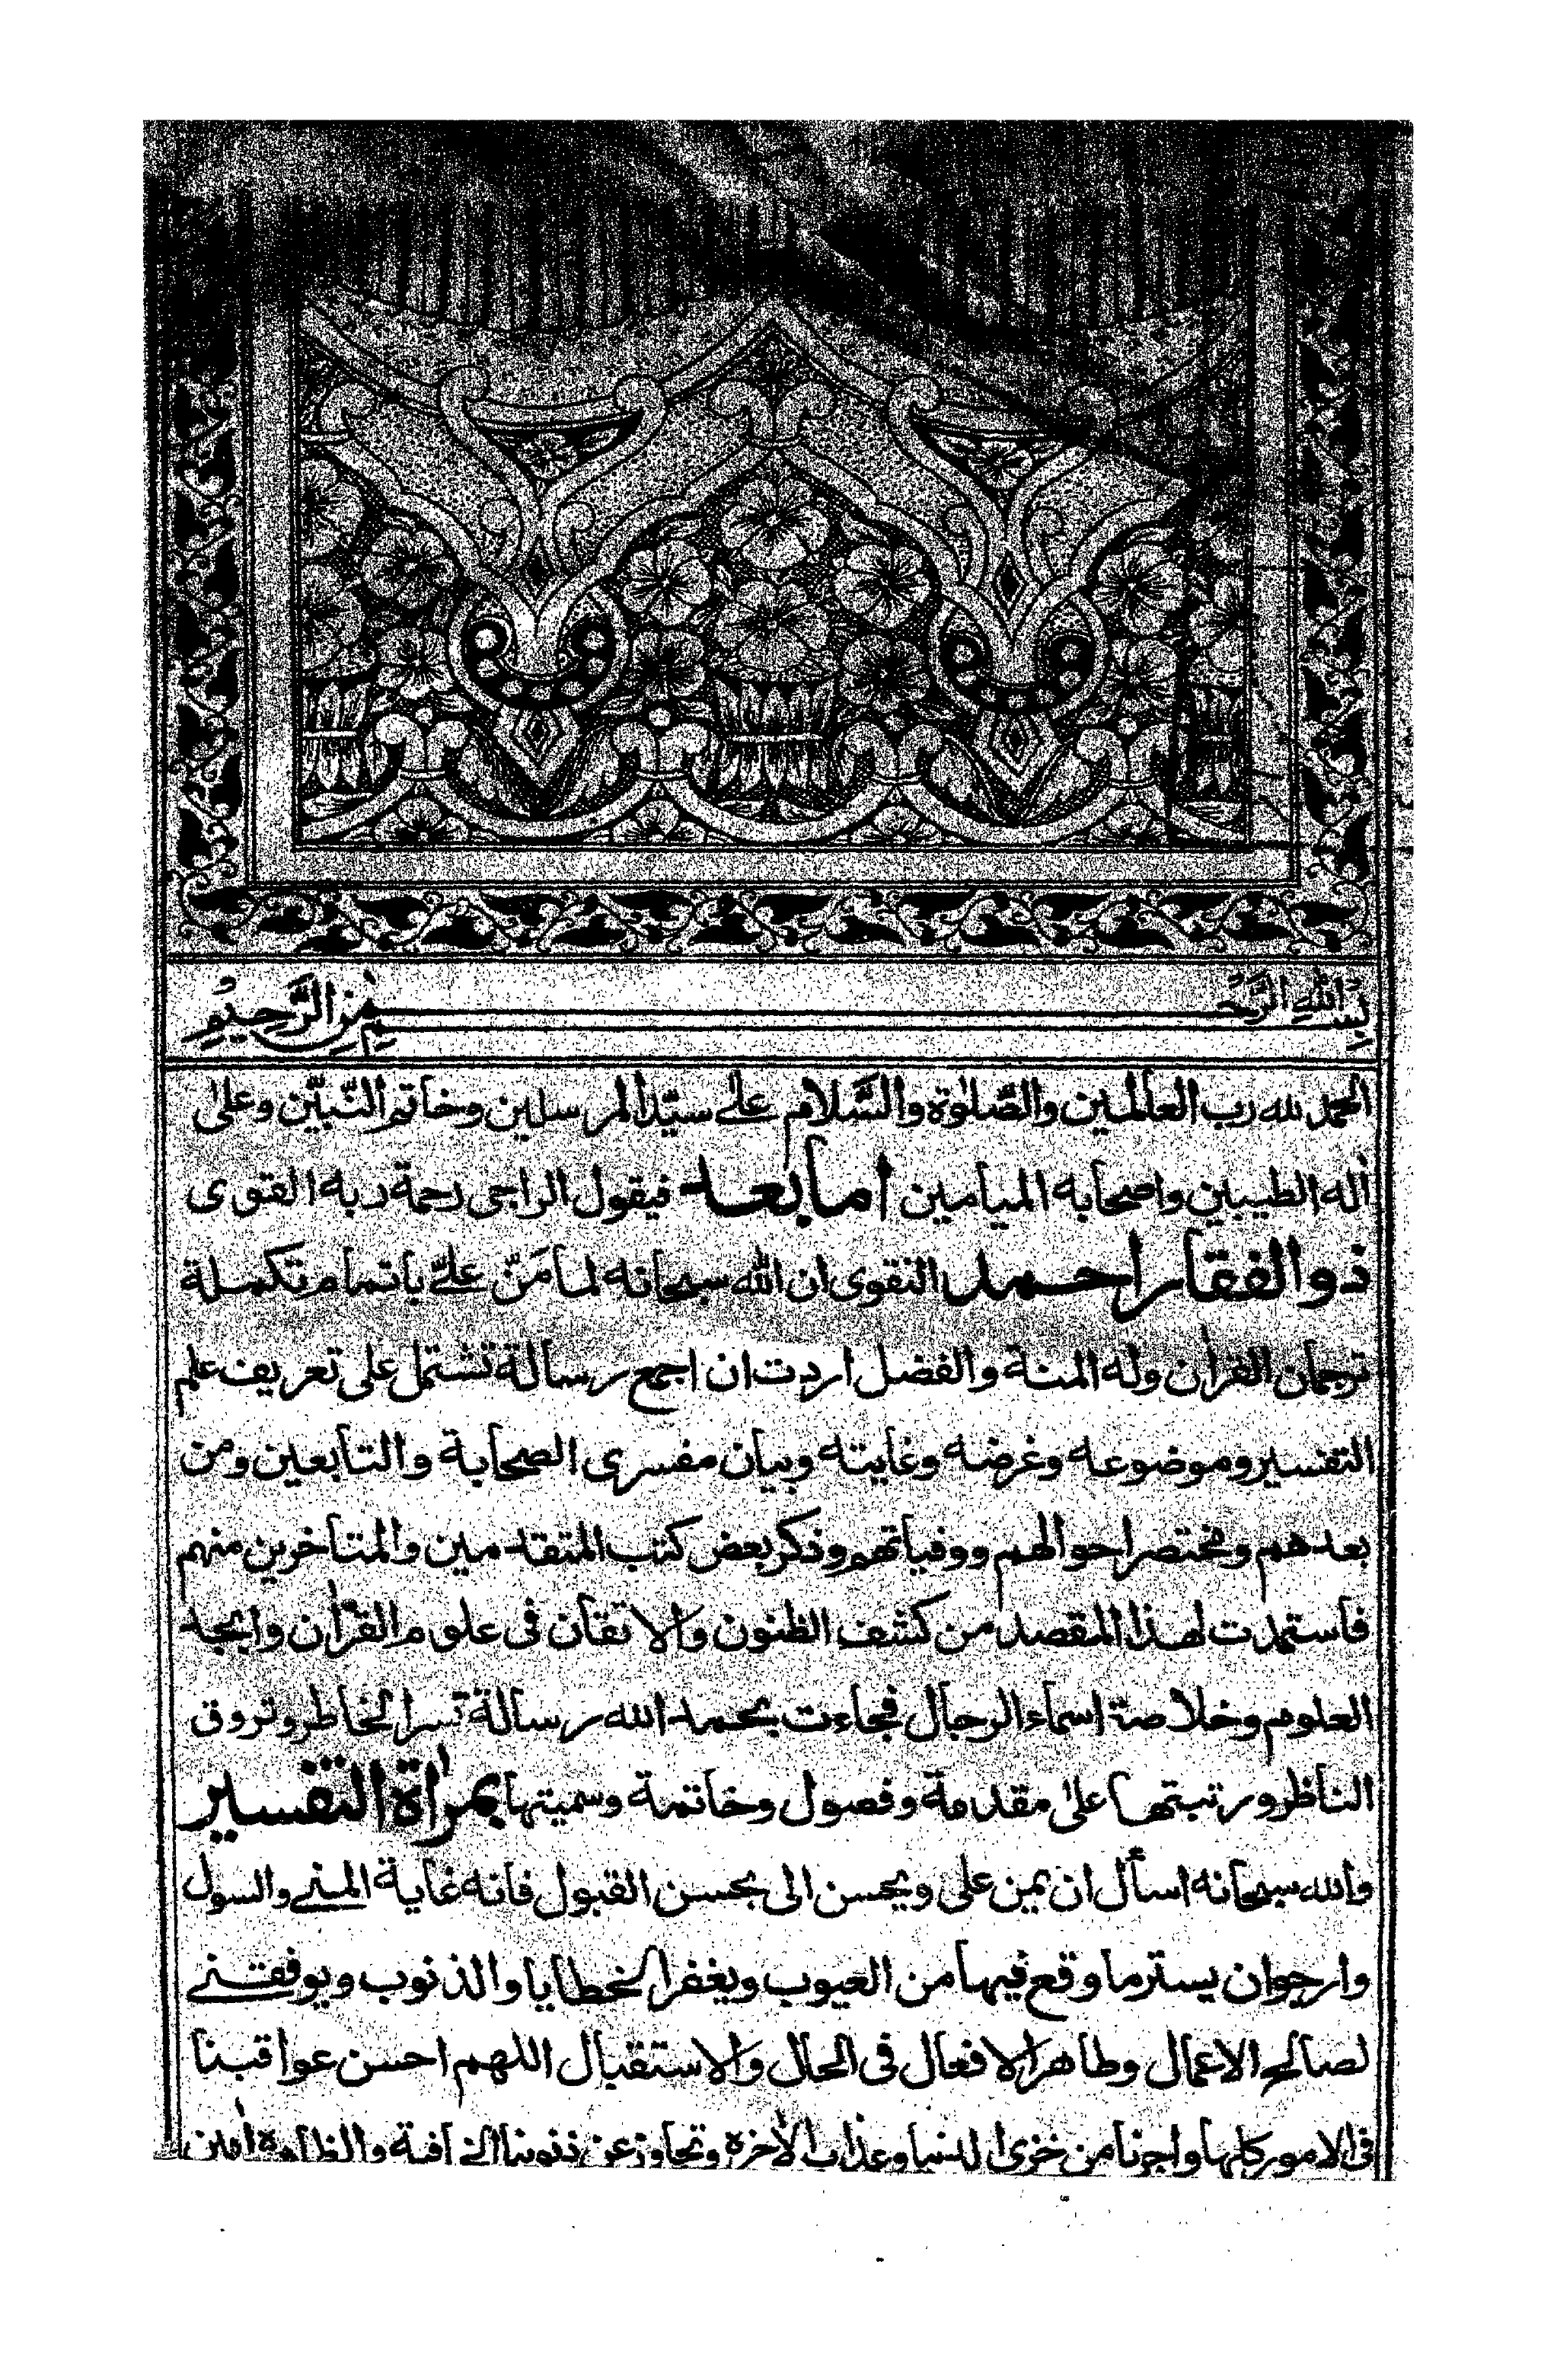 بسم الله الرحمن الرحيم
الحمد لله رب العالمين والصلوة والسلام على سيد المرسلين وخاتم النبيين وعلى
اله الطيبين واصحابه الميامين اما بعد فيقول الراجى رحمة ربه القوى
ذو الفقار احمد النقوى ان الله سبحانه لما مَنّ علىّ باتمام تكملة
ترجمان القران وله المنة والفضل اردت ان اجمع رسالة تشتمل على تعريف علم
التفسير وموضوعه وغرضه وغايته وبيان مفسرى الصحابة والتابعين ومن
بعدهم ومختصر احوالهم ووفياتهم وذكر بعض كتب المتقدمين والمتاخرين منهم
فاستمدت لهذا المقصد من كشف الظنون والاتقان فى علوم القران وابجد
العلوم وخلاصة اسماء الرجال فجاءت بحمد الله رسالة تسر الخاطر وتروق
الناظر ورتبتها على مقدمة وفصول وخاتمة وسميتها بمراة التفسير
والله سبحانه اسأل ان يمن على ويحسن الى بحسن القبول فانه غاية المنى والسول
وارجو ان يستر ما وقع فيها من العيوب ويغفر الخطايا والذنوب ويوفقنى
لصالح الاعمال وطاهر الافعال فى الحال والاستقبال اللهم احسن عواقبنا
فى الامور كلها واجرنا من خزى الدنيا وعذاب الاخرة وتجاوز عن ذنوبنا الخافية والظاهرة امين